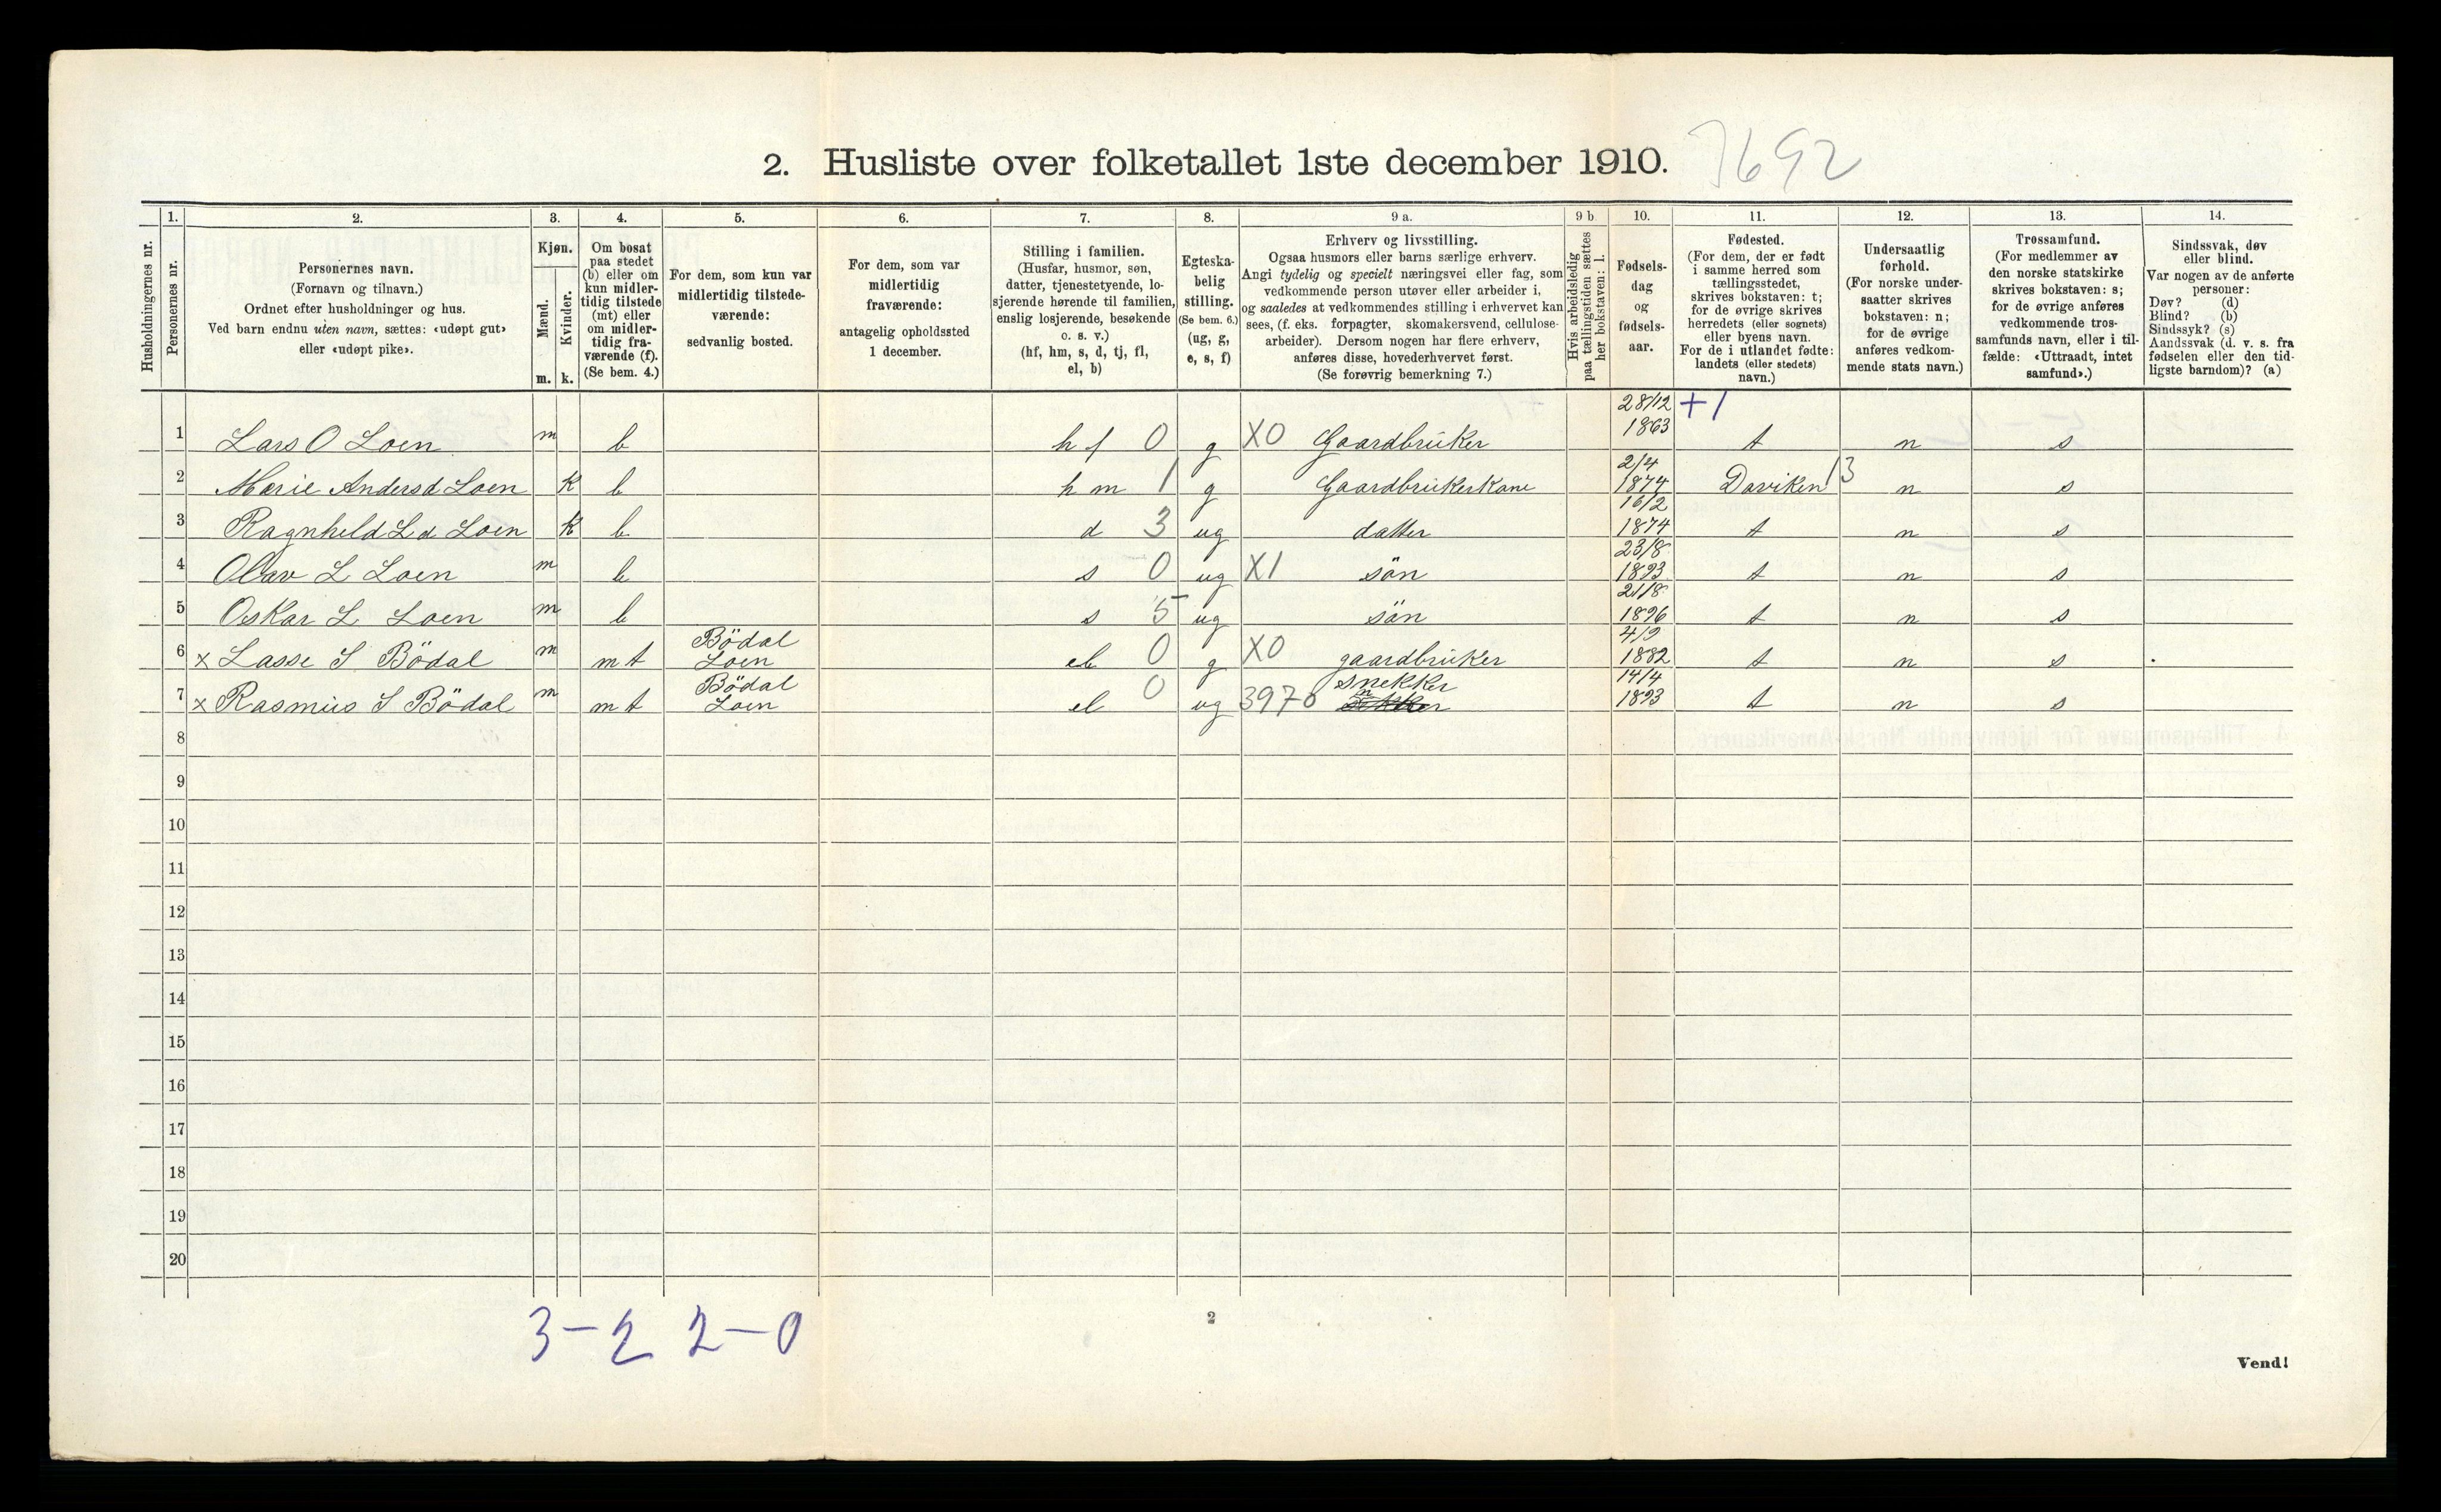 2. Husliste over folketallet 1ste december 1910. 7692
1. 2. 3. 4. 5. 6. 7. 8. 9 a. 9 b. 10. 11. 12. 13. 14.
Husholdningernes nr.
Personernes nr.
Personernes navn.
(Fornavn og tilnavn.)
Ordnet efter husholdninger og hus.
Ved barn endnu uten navn, sættes: «udøpt gut»
eller «udøpt pike».
Kjøn.
Mænd.
Kvinder.
m. k.
Om bosat
paa stedet
(b) eller om
kun midler-
tidig tilstede
(mt) eller
om midler-
tidig fra-
værende (f).
(Se bem. 4.)
For dem, som kun var
midlertidig tilstede-
værende:
sedvanlig bosted.
For dem, som var
midlertidig
fraværende:
antagelig opholdssted
1 december.
Stilling i familien.
(Husfar, husmor, søn,
datter, tjenestetyende, lo-
sjerende hørende til familien,
enslig losjerende, besøkende
o. s. v.)
(hf, hm, s, d, tj, fl,
el, b)
Egteska-
belig
stilling.
(Se bem. 6.)
(ug, g,
e, s, f)
Erhverv og livsstilling.
Ogsaa husmors eller barns særlige erhverv.
Angi tydelig og specielt næringsvei eller fag, som
vedkommende person utøver eller arbeider i,
og saaledes at vedkommendes stilling i erhvervet kan
sees, (f. eks. forpagter, skomakersvend, cellulose-
arbeider). Dersom nogen har flere erhverv,
anføres disse, hovederhvervet først.
(Se forøvrig bemerkning 7.)
Hvis arbeidsledig
paa tællingstiden sættes
her bokstaven: l.
Fødsels-
dag
og
fødsels-
aar.
Fødested.
(For dem, der er født
i samme herred som
tællingsstedet,
skrives bokstaven: t;
for de øvrige skrives
herredets (eller sognets)
eller byens navn.
For de i utlandet fødte:
landets (eller stedets)
navn.)
Undersaatlig
forhold.
(For norske under-
saatter skrives
bokstaven: n;
for de øvrige
anføres vedkom-
mende stats navn.)
Trossamfund.
(For medlemmer av
den norske statskirke
skrives bokstaven: s;
for de øvrige anføres
vedkommende tros-
samfunds navn, eller i til-
fælde: «Uttraadt, intet
samfund».)
Sindssvak, døv
eller blind.
Var nogen av de anførte
personer:
Døv? (d)
Blind? (b)
Sindssyk? (s)
Aandssvak (d. v. s. fra
fødselen eller den tid-
ligste barndom)? (a)
1 Lars O Loen m b hf 0 g X0 Gaardbruker 28/12 1863 +1 t n s
2 Marie Andersd Loen k b hm 1 g Gaardbrukerkone 2/4 1874 Daviken 13 n s
3 Ragnheld L d Loen k b d 3 ug datter 16/2 1874 t n s
4 Olav L Loen m b s 0 ug X1 sön 23/8 1893 t n s
5 Oskar L Loen m b s 5 ug sön 21/8 1896 t n s
6 x Lasse S Bödal m mt Bödal Loen el 0 g X0 gaardbruker 4/9 1882 t n s
7 x Rasmus S Bödal m mt Bödal Loen el 0 ug 3970 snekker 14/4 1893 t n s
8
9
10
11
12
13
14
15
16
17
18
19
20
3-2 2-0
2
Vend!